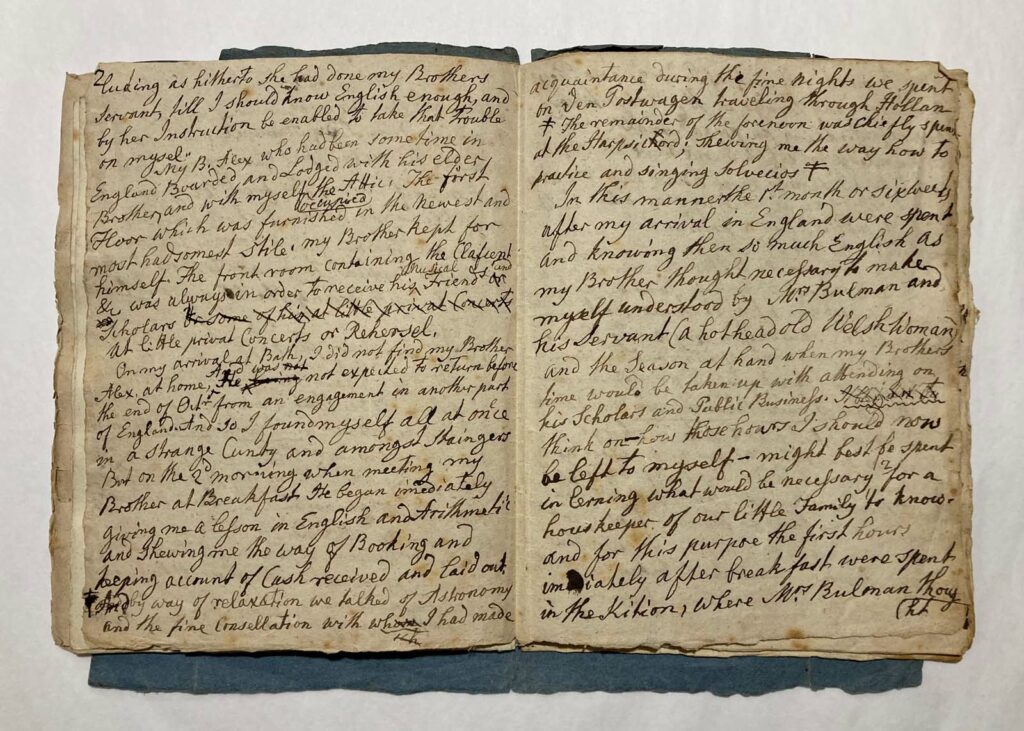 2 luding as hitherto she had done my Brothers
Servant, till I should know English enough, and
by her Instruction be enabled to take that Trouble
on myself. My B. Alex who had been some time in
England Boarded and Lodged with his elder
Brother, and with myself occupied the Attic. The first
Floor which was furnished in the newest and
most hadsomest Stile, my Brother kept for
himself. The front room containing the
&c was always in order to receive his Musical Friends and
Scholars or some of his at little privat Concerts
At little privat Concerts or Rehersel.
On my arrival at Bath, I did not find my Brother
Alex, at home, And was not expected to return before
the end of Octr from an engagement in another part
of England. And so I found myself all at once
in a strange Cuntry and amongst Straingers
But on the 2d morning when meeting my
Brother at Breakfast. He began imediately
giving me a lesson in English and Arithmetic
and shewing me the way of Booking and
keeping account of Cash received and laid out
‡ And by way of relaxation we talked of Astronomy
and the fine Consellation with whom I had made
acquaintance during the fine Nights we spent
on Den Postwagen traveling through Hollan
‡ The remainder of the forenoon was chiefly spent
at the Harpsichord; shewing me the way how to
practice and singing Solvecios ‡
In this manner the 1st month or six weeks
after my arrival in England were spent
and knowing then so much English as
my Brother thought necessary to make
myself understood by Mrs Bulman and
his Servant (a hothead old Welsh Woman)
and the Season at hand when my Brothers
time would be taken up with attending on
his Scholars and Public Business.
think on how those hours I should now
be left to myself – might best be spent
in lerning what would be necessary for a
houskeeper of our little Family to know.
and for this purpose the first hours
imediately after breakfast were spent
in the Kition, where Mrs Bulman thoug
(ht